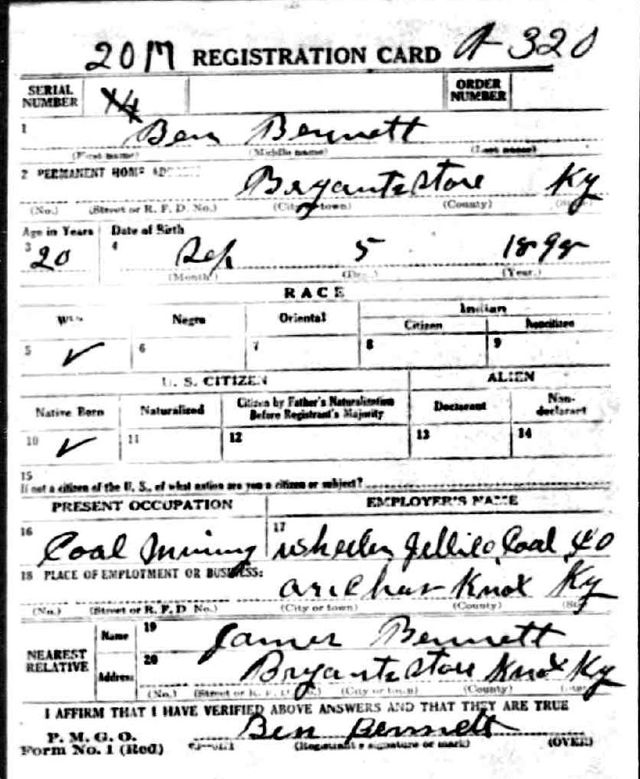 20 M REGISTRATION CARD A-320
SERIAL NUMBER ORDER NUMBER
1 Ben Bennett
(First name) (Middle name) (Last name)
2 PERMANENT HOME Bryants Store Ky
(No.) (Street or R. F. D. No.) (City or town) (County)
Age in Years Date of Birth
3 20 4 Sep 5 1898
(Month) (Day.) (Year.)
RACE
Negro Oriental Indian
Citizen Noncitizen
5 ✓ 6 7 8 9
U. S. CITIZEN ALIEN
Native Born Naturalized Citizen by Father's Naturalization Before Registrant's Majority Declarant Non-declarant
10 ✓ 11 12 13 14
15
If not a citizen of the U. S., of what nation are you a citizen or subject?
PRESENT OCCUPATION EMPLOYER'S NAME
16 Coal Mining 17 Jellico Coal Co
18 PLACE OF EMPLOYMENT OR BUSINESS:
Knox Ky
(No.) (Street or R. F. D. No.) (City or town) (County)
NEAREST RELATIVE Name 19 James Bennett
Address 20 Bryants Store Knox Ky
(No.) (Street or R. F. D. No.) (City or town) (County)
I AFFIRM THAT I HAVE VERIFIED ABOVE ANSWERS AND THAT THEY ARE TRUE
P. M. G. O. Ben Bennett
Form No. 1 (Red) (Registrant's signature or mark) (OVER)